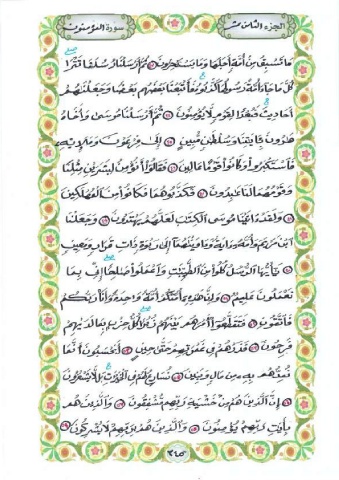 الجزء الثامن عشر
سورة المؤمنون
مَا تَسْبِقُ مِنْ أُمَّةٍ أَجَلَهَا وَمَا يَسْتَـْٔخِرُونَ ٤٣ ثُمَّ أَرْسَلْنَا رُسُلَنَا تَتْرَا
كُلَّ مَا جَآءَ أُمَّةً رَّسُولُهَا كَذَّبُوهُ فَأَتْبَعْنَا بَعْضَهُم بَعْضًا وَجَعَلْنَٰهُمْ
أَحَادِيثَ فَبُعْدًا لِّقَوْمٍ لَّا يُؤْمِنُونَ ٤٤ ثُمَّ أَرْسَلْنَا مُوسَىٰ وَأَخَاهُ
هَٰرُونَ بِـَٔايَٰتِنَا وَسُلْطَٰنٍ مُّبِينٍ ٤٥ إِلَىٰ فِرْعَوْنَ وَمَلَإِي۟هِ
فَٱسْتَكْبَرُوا۟ وَكَانُوا۟ قَوْمًا عَالِينَ ٤٦ فَقَالُوٓا۟ أَنُؤْمِنُ لِبَشَرَيْنِ مِثْلِنَا
وَقَوْمُهُمَا لَنَا عَٰبِدُونَ ٤٧ فَكَذَّبُوهُمَا فَكَانُوا۟ مِنَ ٱلْمُهْلَكِينَ
٤٨ وَلَقَدْ ءَاتَيْنَا مُوسَى ٱلْكِتَٰبَ لَعَلَّهُمْ يَهْتَدُونَ ٤٩ وَجَعَلْنَا
ٱبْنَ مَرْيَمَ وَأُمَّهُۥٓ ءَايَةً وَءَاوَيْنَٰهُمَآ إِلَىٰ رَبْوَةٍ ذَاتِ قَرَارٍ وَمَعِينٍ
٥٠ يَٰٓأَيُّهَا ٱلرُّسُلُ كُلُوا۟ مِنَ ٱلطَّيِّبَٰتِ وَٱعْمَلُوا۟ صَٰلِحًا إِنِّى بِمَا
تَعْمَلُونَ عَلِيمٌ ٥١ وَإِنَّ هَٰذِهِۦٓ أُمَّتُكُمْ أُمَّةً وَٰحِدَةً وَأَنَا۠ رَبُّكُمْ
فَٱتَّقُونِ ٥٢ فَتَقَطَّعُوٓا۟ أَمْرَهُم بَيْنَهُمْ زُبُرًا كُلُّ حِزْبٍۭ بِمَا لَدَيْهِمْ
فَرِحُونَ ٥٣ فَذَرْهُمْ فِى غَمْرَتِهِمْ حَتَّىٰ حِينٍ ٥٤ أَيَحْسَبُونَ أَنَّمَا
نُمِدُّهُم بِهِۦ مِن مَّالٍ وَبَنِينَ ٥٥ نُسَارِعُ لَهُمْ فِى ٱلْخَيْرَٰتِ بَل لَّا يَشْعُرُونَ
٥٦ إِنَّ ٱلَّذِينَ هُم مِّنْ خَشْيَةِ رَبِّهِم مُّشْفِقُونَ ٥٧ وَٱلَّذِينَ هُم
بِـَٔايَٰتِ رَبِّهِمْ يُؤْمِنُونَ ٥٨ وَٱلَّذِينَ هُم بِرَبِّهِمْ لَا يُشْرِكُونَ ٥٩
٣٤٥